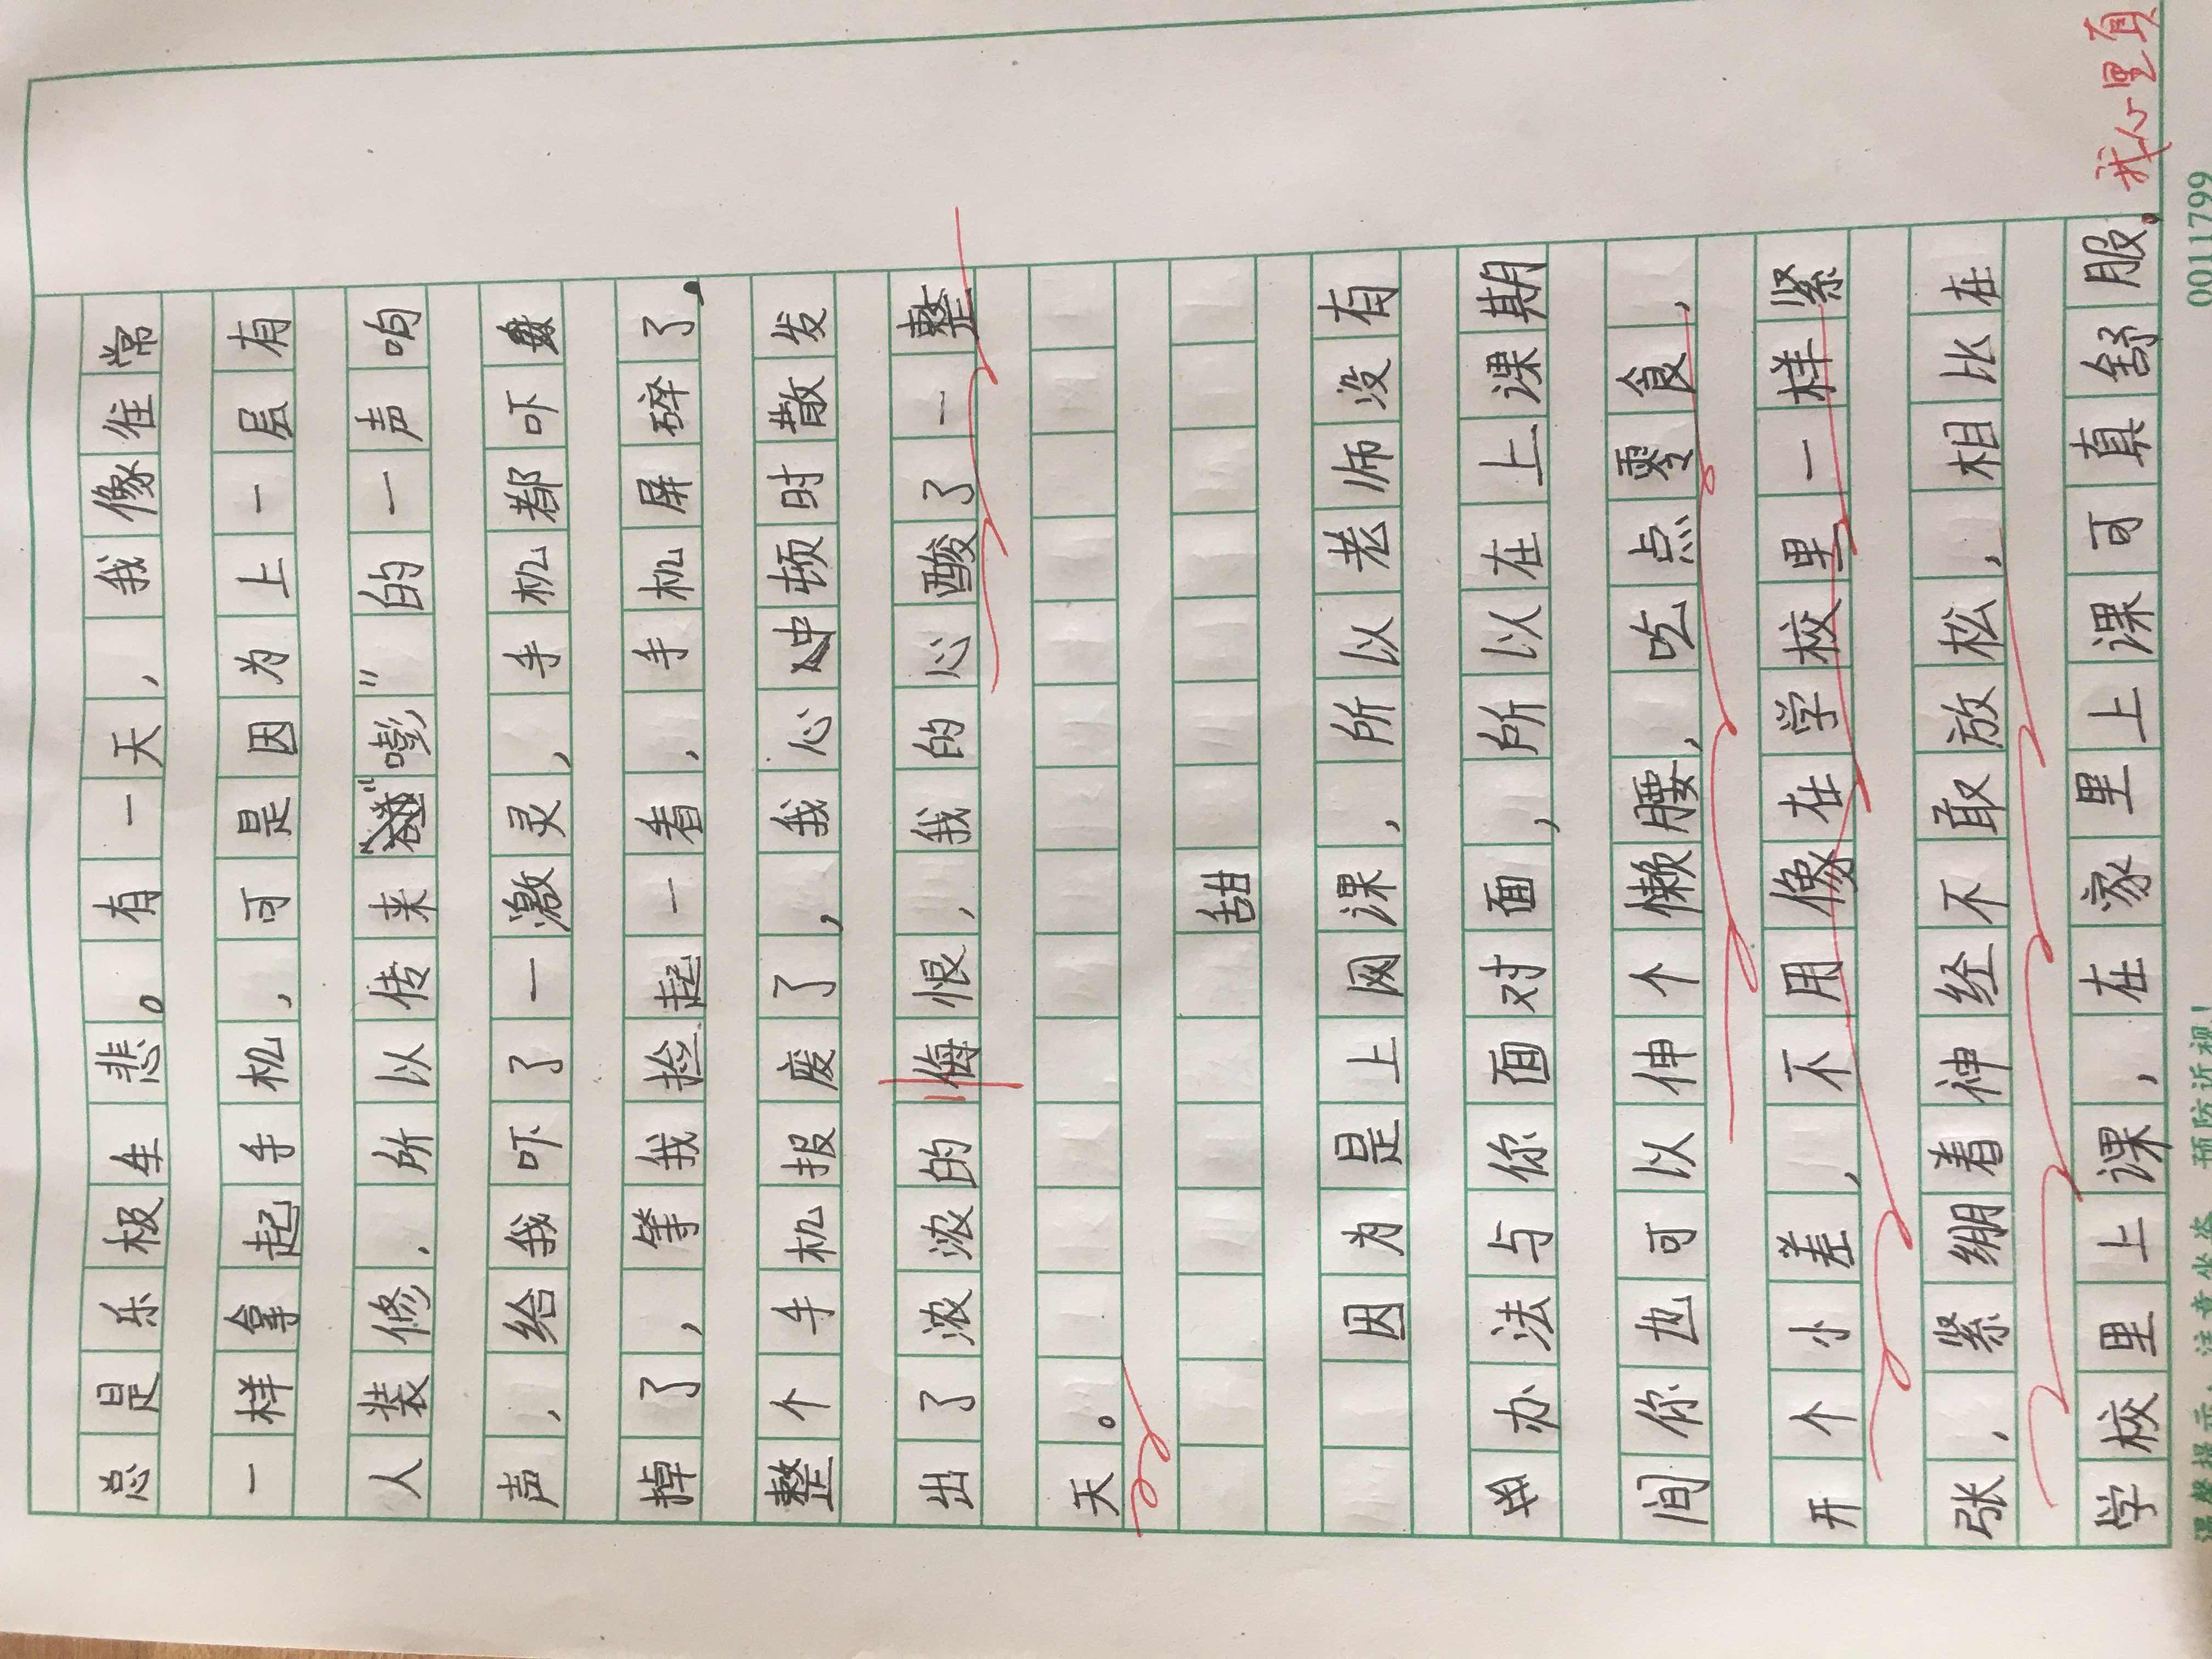 总是乐极生悲。有一天，我像往常
一样拿起手机，可是因为上一层有
人装修，所以传来“嘭”的一声响
声，给我吓了一激灵，手机都吓
掉了，等我捡起一看，手机屏碎了，
整个手机报废了，我心中顿时散发
出了浓浓的悔恨，我的心酸了一整
天。
甜
因为是上网课，所以老师没有
办法与你面对面，所以在上课期
间你也可以伸个懒腰，吃点零食，
开个小差，不用像在学校里一样紧
张，紧绷着神经不敢放松，相比在
学校里上课，在家里上课可真舒服。我心里真
温馨提示：注意坐姿 预防近视！ 0011799